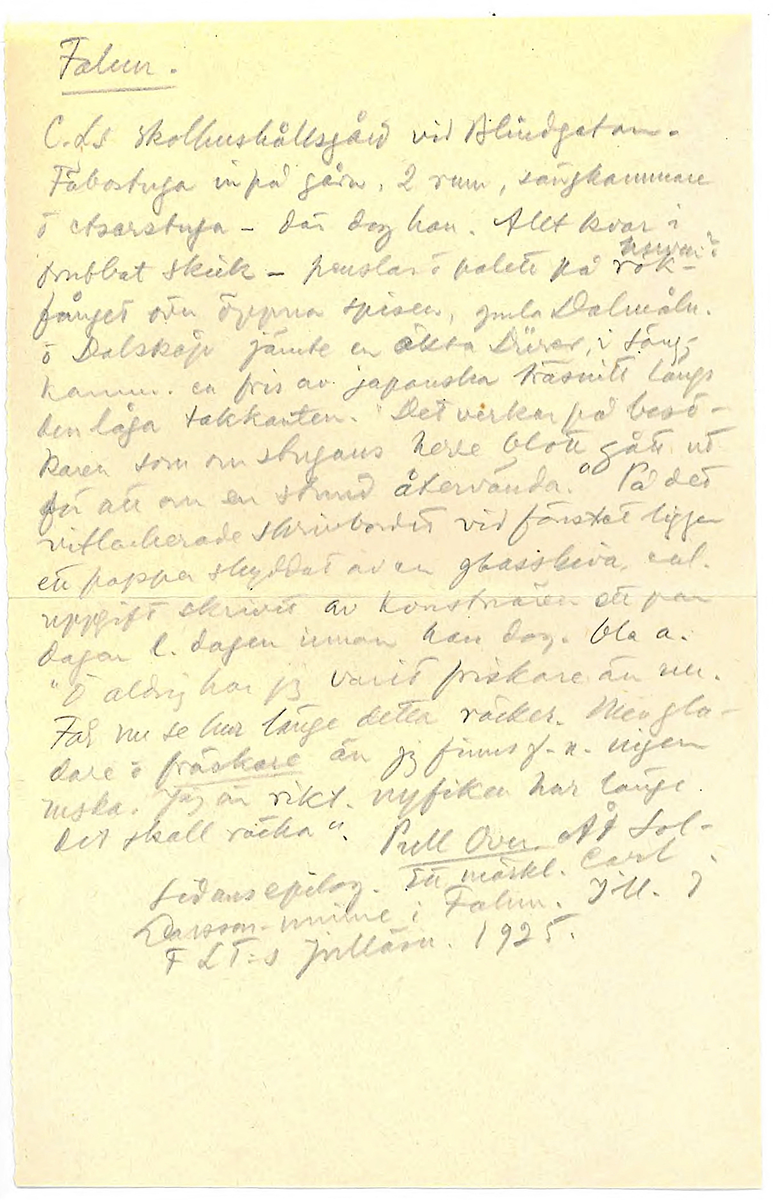 Falun.
C.Ls skolhushållsgård vid Blindgatan.
Fäbostuga in på gårn, 2 rum, sängkammare
o - där dog han. Allt kvar i
skick - penslar o palett på rök-
fånget över öppna spisen, gmla Dalmåln.
o Dalskåp jämte en äkta Dürer, i säng-
kamm. en fris av japanska träsnitt längs
den låga takkanten. "Det verkar på besö-
karen som om stugans herre blott gått ut
för att om en stund återvända." På det
vitlackerade skrivbordet vid fönstret ligger
ett papper skyddat av en glasskiva, enl.
uppgift skrivet av konstnären ett par
dagar l. dagen innan han dog. bl a.
"O aldrig har jag varit friskare än nu.
Får nu se hur länge detta räcker. Men gla-
dare o fräskare än jag finns f. n. ingen
mska. Jag är rikt. nyfiken hur länge
det skall räcka". Pull Over. Å Sol-
sidans epilog. Ett märkl. Carl
Larsson-minne i Falun. Ill. J
F L T:s julläsn. 1925.